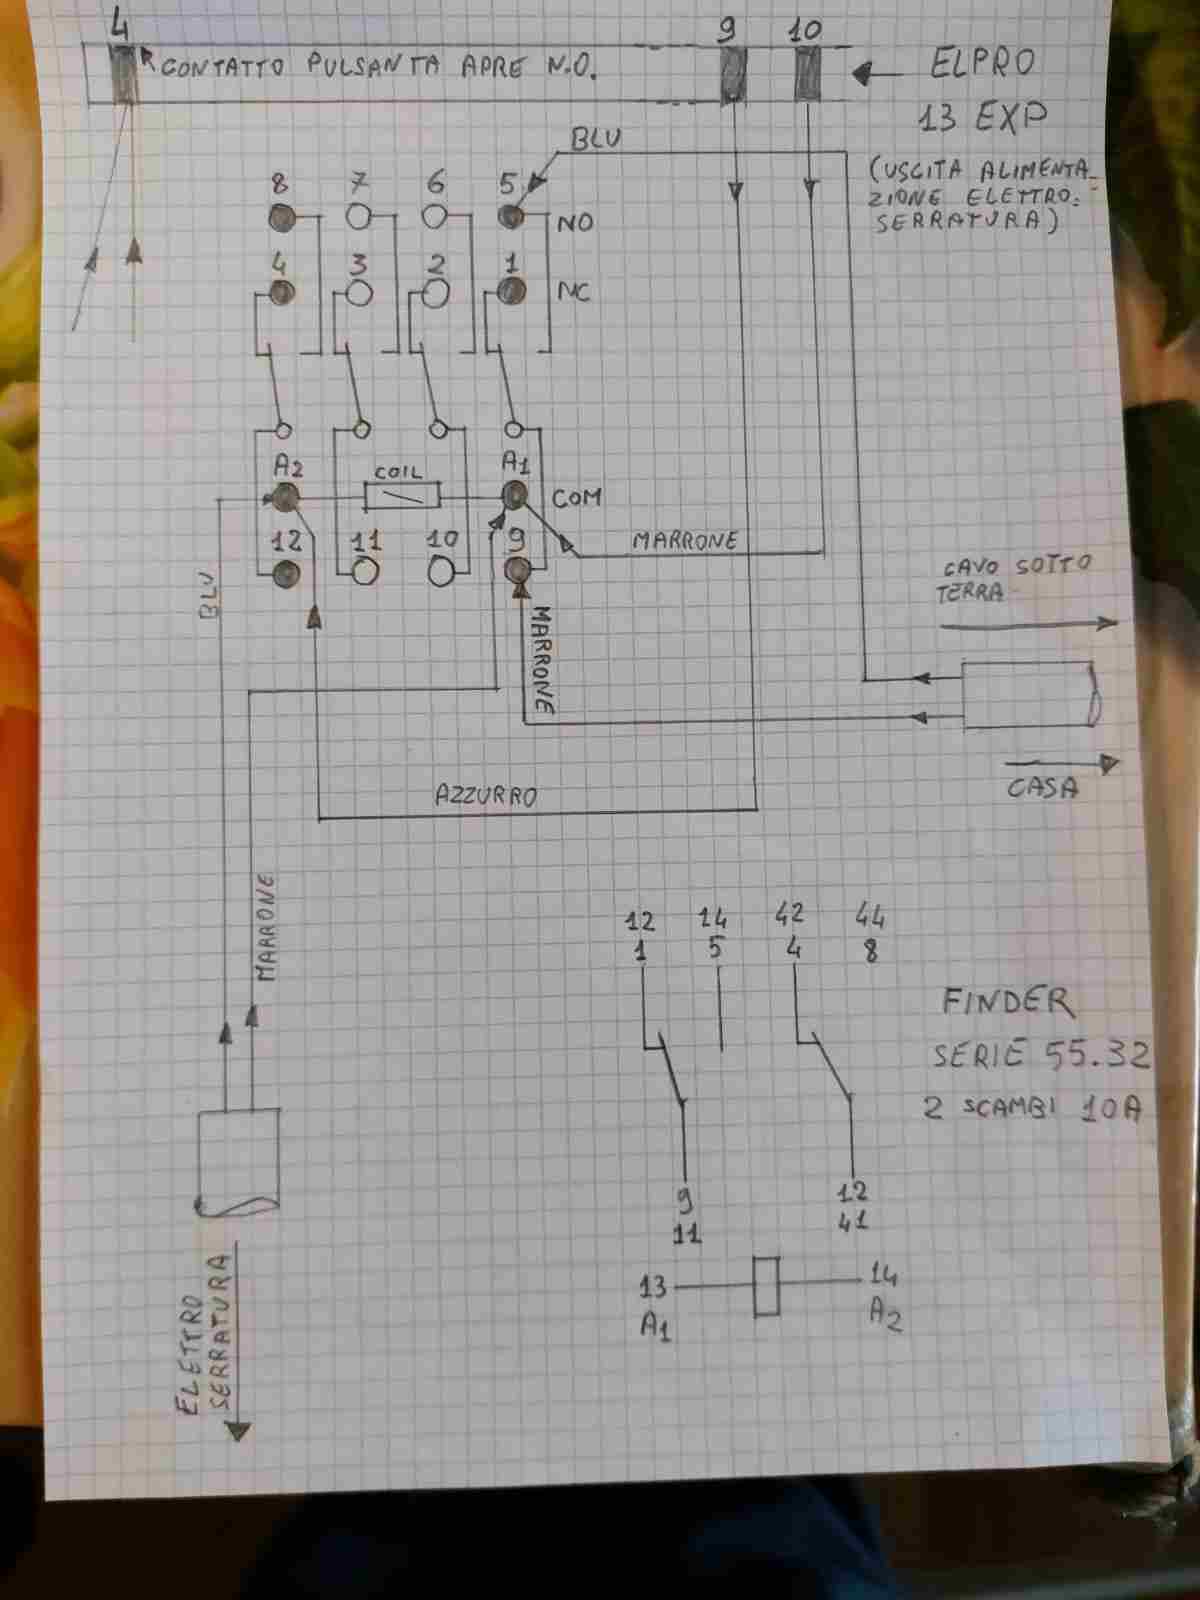 4
9 10
CONTATTO PULSANTA APRE N.O.
ELPRO
13 EXP
BLU
(USCITA ALIMENTA-
ZIONE ELETTRO-
SERRATURA)
8 7 6 5
NO
4 3 2 1
NC
A2 COIL A1
COM
12 11 10 9
MARRONE
BLU
MARRONE
CAVO SOTTO
TERRA
CASA
AZZURRO
MARRONE
12 14 42 44
1 5 4 8
FINDER
SERIE 55.32
2 SCAMBI 10A
9 12
11 41
13 14
A1 A2
ELETTRO
SERRATURA